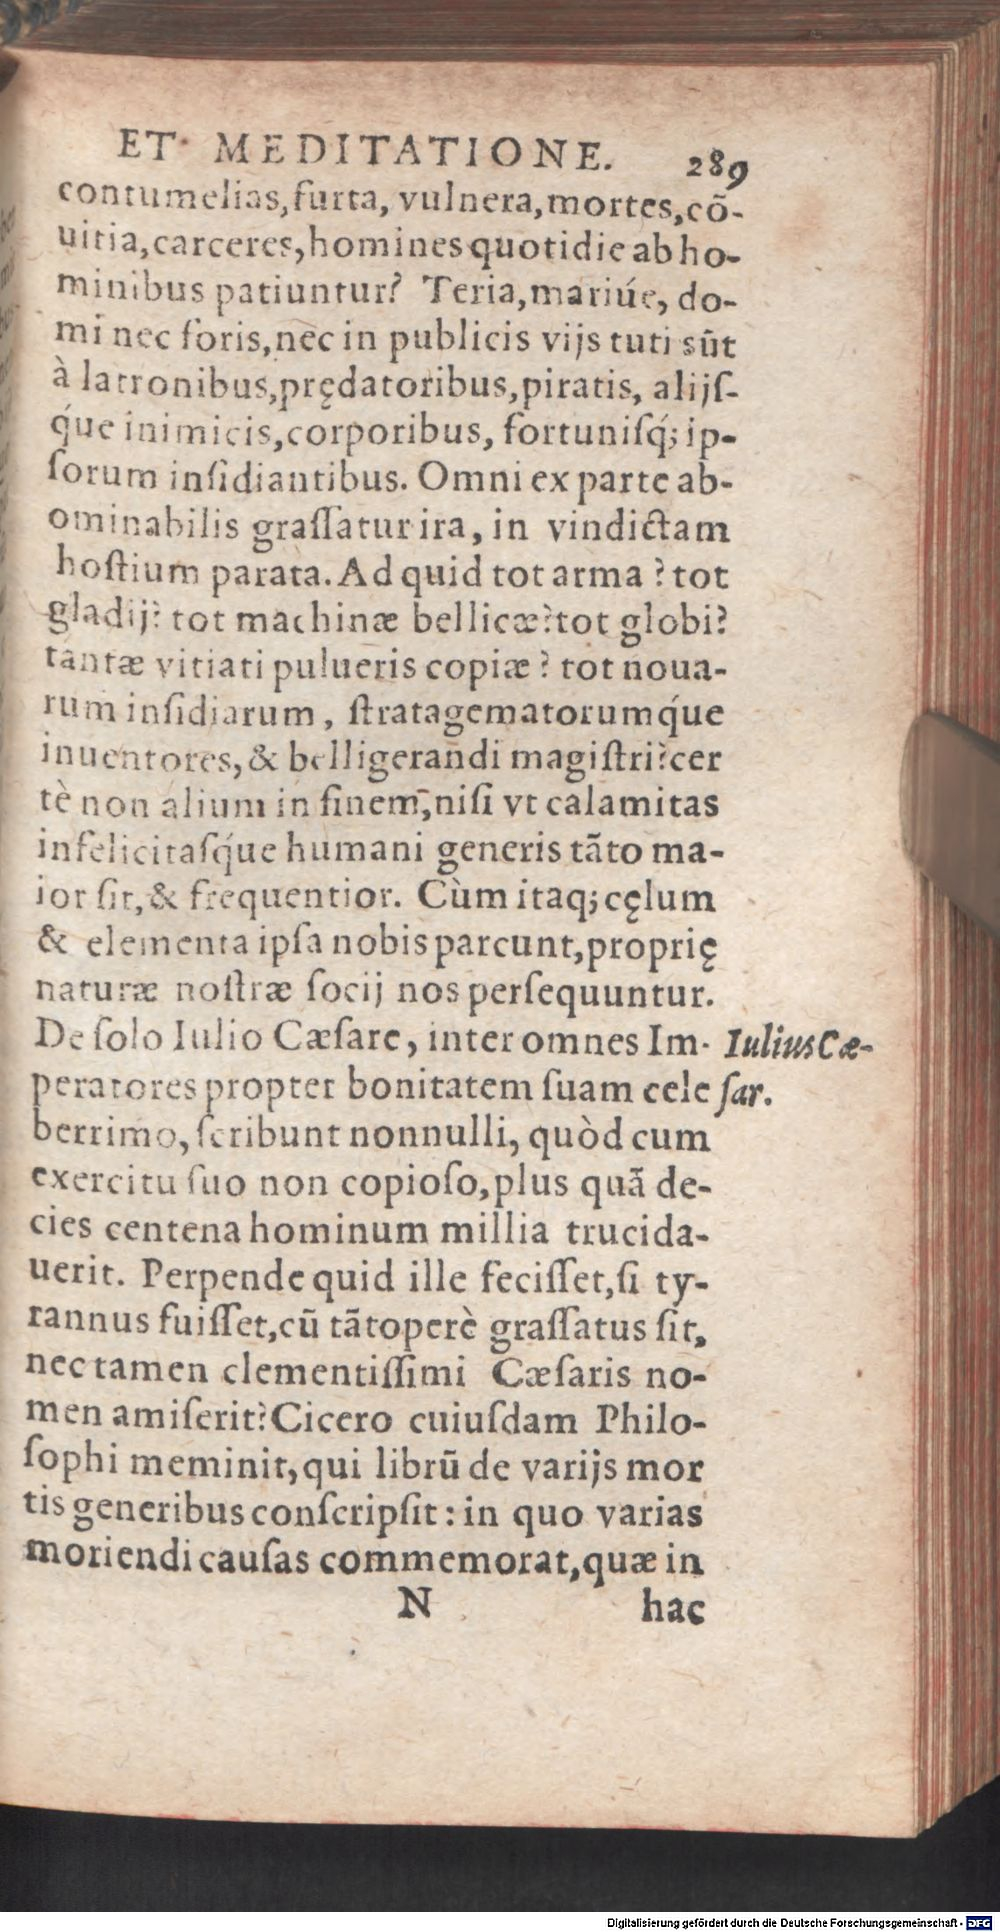 ET MEDITATIONE. 289
contumelias, furta, vulnera, mortes, cõ-
uitia, carceres, homines quotidie ab ho-
minibus patiuntur? Teria, mariúe, do-
mi nec foris, nec in publicis vijs tuti sũt
à latronibus, prędatoribus, piratis, alijſ-
q́ue inimicis, corporibus, fortuniſq́; ip-
ſorum inſidiantibus. Omni ex parte ab-
ominabilis graſſatur ira, in vindictam
hoſtium parata. Ad quid tot arma? tot
gladij? tot machinæ bellicæ? tot globi?
tantæ vitiati pulueris copiæ? tot noua-
rum inſidiarum, ſtratagematorumq́ue
inuentores, & belligerandi magiſtri? cer
tè non alium in finem, niſi vt calamitas
infelicitaſq́ue humani generis tãto ma-
ior ſit, & frequentior. Cùm itaq; cęlum
& elementa ipſa nobis parcunt, proprię
naturæ noſtræ ſocij nos perſequuntur.
De ſolo Iulio Cæſare, inter omnes Im-
peratores propter bonitatem ſuam cele
berrimo, ſcribunt nonnulli, quòd cum
exercitu ſuo non copioſo, plus quã de-
cies centena hominum millia trucida-
uerit. Perpende quid ille feciſſet, ſi ty-
rannus fuiſſet, cũ tãtoperè graſſatus ſit,
nec tamen clementiſſimi Cæſaris no-
men amiſerit? Cicero cuiuſdam Philo-
ſophi meminit, qui librũ de varijs mor
tis generibus conſcripſit: in quo varias
moriendi cauſas commemorat, quæ in
N hac
Iulius Cæ-
ſar.
Digitalisierung gefördert durch die Deutsche Forschungsgemeinschaft - DFG